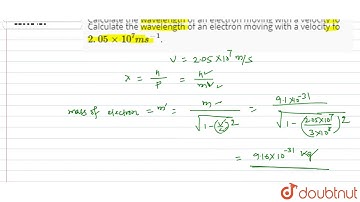 Calculate the wavelength of an electron moving with a velocity to
Calculate the wavelength of an electron moving with a velocity to
2.05 × 10⁷ ms⁻¹.
V = 2.05 × 10⁷ m/s
λ = h/p = h/mv
mass of electron = m' = m/√(1-(v/c)²) = 9.1×10⁻³¹/√(1-(2.05×10⁷/3×10⁸)²)
= 9.16×10⁻³¹ kg
doubtnut